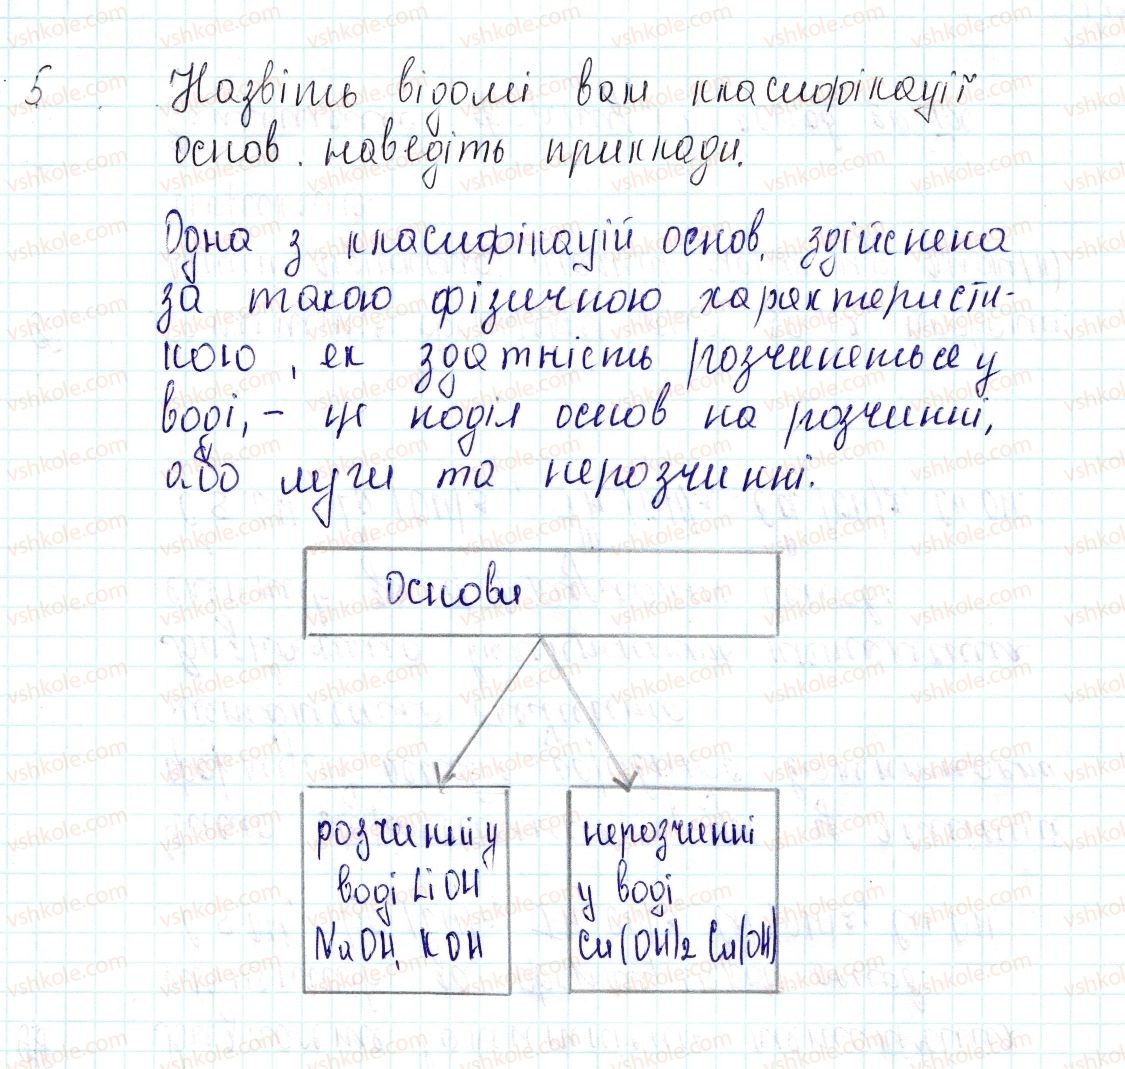 5. Назвіть відомі вам класифікації
основ. наведіть приклади.
Одна з класифікацій основ, здійснена
за такою фізичною характеристи-
кою, як здатність розчиняться у
воді, - це поділ основ на розчинні,
або луги та нерозчинні.
Основи
розчинні у
воді LiOH
NaOH, KOH
нерозчинні
у воді
Cu(OH)2 Cu(OH)